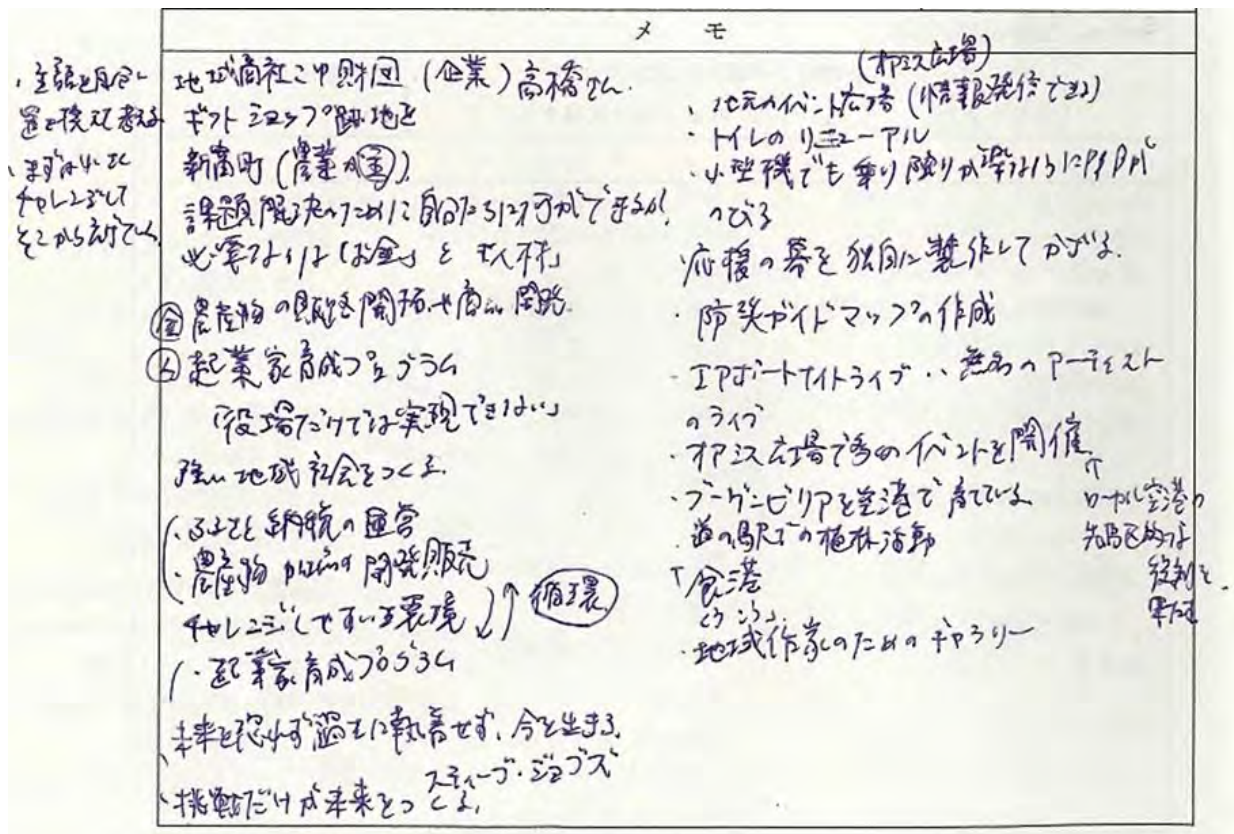 メモ
・主語を自分に
置き換えて考える
・まずは小さく
チャレンジして
そこから広げていく
地域商社こゆ財団 (企業) 高橋さん.
ギフトショップ跡地を
新富町 (農業が㊎).
課題解決のために自分たちに何ができるか.
必要なのは「お金」と「人材」
㊎農産物の販路開拓や商品開発.
㊅起業家育成プログラム
「役場だけでは実現できない」
強い地域社会をつくる.
・ふるさと納税の運営
・農産物 開発販売
チャレンジしやすい環境
循環
・起業家育成プログラム
未来を恐れず過去に執着せず、今を生きる.
スティーブ・ジョブズ
・挑戦だけが未来をつくる.
(オアシス広場)
・地元のイベント広場 (情報発信できる)
・トイレのリニューアル
・小型機でも乗り降りが楽なように
のびる
応援の幕を独自に製作してかざる.
・防災ガイドマップの作成
・エアポートナイトライブ・・無名のアーティスト
のライブ
・オアシス広場で多めのイベントを開催
↑
ローカル空港の
先駆的な
役割を
果たす.
・ブーゲンビリアを空港で育てている.
・道の駅での植林活動
↑食港
くうこう
・地域作家のためのギャラリー